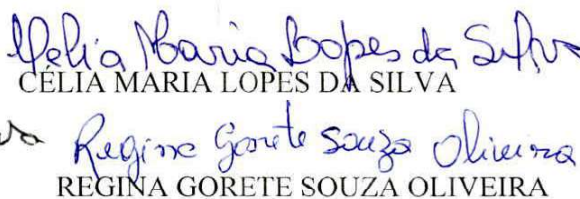 Célia Maria Lopes da Silva
CÉLIA MARIA LOPES DA SILVA
Regina Gorete Souza Oliveira
REGINA GORETE SOUZA OLIVEIRA